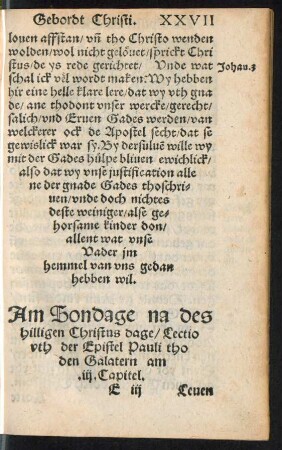 Gebordt Christi. XXVII
louen affstan/ vñ tho Christo wenden
wolden/ wol nicht gelöuet/ sprickt Chri
stus/ de ys rede gerichtet/ Vnde wat
Johan.3
schal ick vël wordt maken: Wy hebben
hir eine helle klare lere/ dat wy vth gna
de/ ane thodont vnser wercke/ gerecht/
salich/ vnd Eruen Gades werden/ van
welckerer ock de Apostel secht/ dat se
gewislick war sy. By dersuluë wille wy
mit der Gades hülpe bliuen ewichlick/
also dat wy vnse iustification alle
ne der gnade Gades thoschri-
uen/ vnde doch nichtes
deste weiniger/ alse ge-
horsame kinder don/
allent wat vnse
Vader jm
hemmel van vns gedan
hebben wil.
Am Sondage na des
hilligen Christus dage/ Lectio
vth der Epistel Pauli tho
den Galatern am
.iij. Capitel.
E iij Leuen